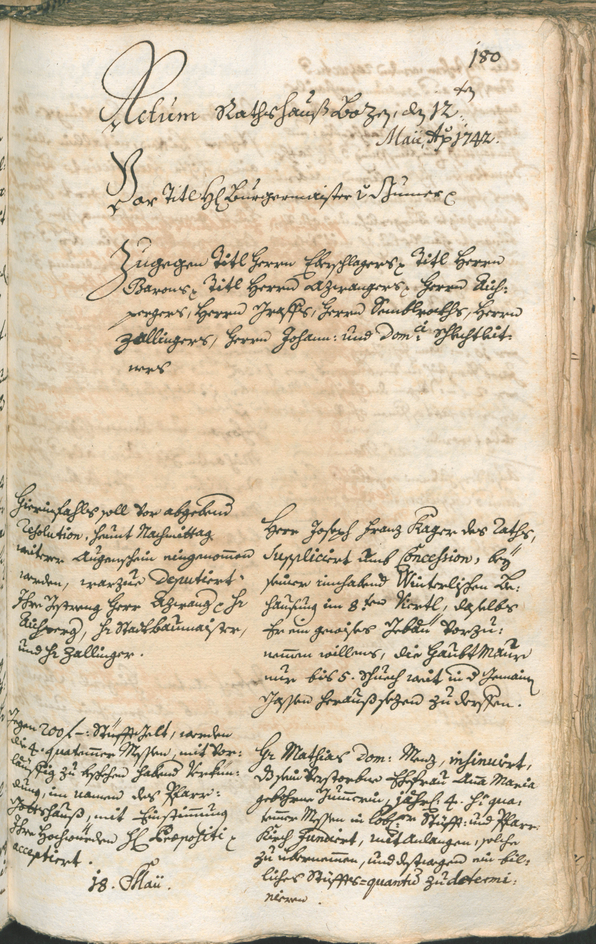 180
Actum Rathshauß Bozen, den 12ten
Maii Ao 1742.
Vor Titl H: Burgermaister
Zugegen Titl Herrn Eberschlagers, Titl Herrn
Barons, Titl Herrn Azwangers, Herrn Aich-
pergers, Herrn Graffs, Herrn
Zallingers, Herrn Johann: und Domci
Hierinfahls soll vor abgebend
resolution, heunt Nachmittag
weiterer Augenschein eingenommen
werden, warzue Deputiert
Ihro Herr Azwang: H:
Aichperg, H: Stadtbaumaister,
und H: Zallinger.
Herr Joseph Franz Kager des Raths,
Suppliciert umb Concession, bey
seiner inhabend Winterlichen Be-
hausung im 8ten Viertl, daselbs
Er ein gewises Gebäu vorzu-
nemmen willens, die Haubt Maur
nur bis 5. Schuech weit in d Gemain
Gassen herauß sezen zu derffen.
Gegen 200 f: Stüfftgelt, werden
die 4. quatemer Messen, mit vor-
leuffig zu beschehen habend Verkün-
dung, im namen des Pfarr-
Gottshauß, mit Einstimmung
Ihro Hochwürden H: Propositi
acceptiert.
18. Maii.
Hr Mathias Dom: Menz, insinuirt,
dß sein verstorbne Ehefrau Ana Maria
geborne, jährl: 4. H: qua-
temer Messen in lobl: Stüfft- und Pfarr-
Kirch Fundiert, mit Anlangen, solche
zu übernemen, und destwegen ein bil-
liches Stüffts-quantu zu determi-
nieren.